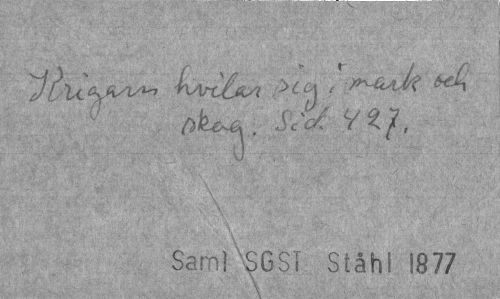 Krigarn hvilar sig i mark och
skog. Sid. 427.
Saml SGST Ståhl 1877